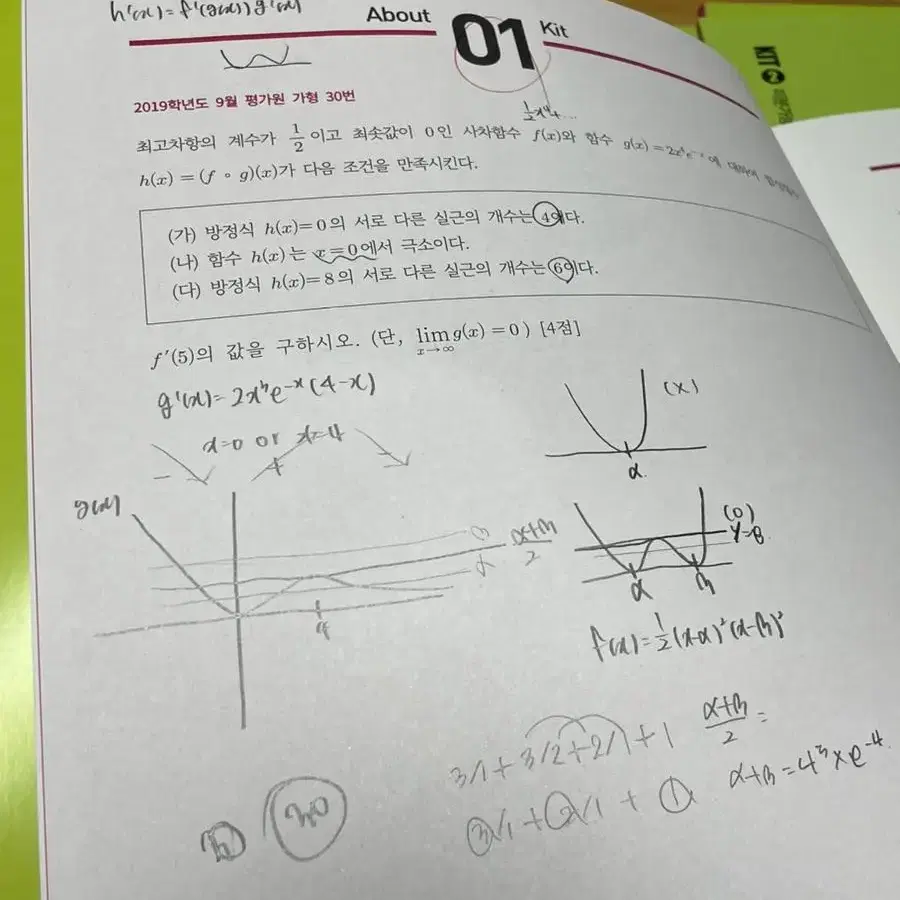 h'(x)=f'(g(x))g'(x)
About 01 Kit
2019학년도 9월 평가원 가형 30번
1/2 x⁴+...
최고차항의 계수가 1/2 이고 최솟값이 0인 사차함수 f(x)와 함수 g(x)=2x⁴e⁻ˣ에 대하여 합성함수
h(x)=(f∘g)(x)가 다음 조건을 만족시킨다.
(가) 방정식 h(x)=0의 서로 다른 실근의 개수는 4이다.
(나) 함수 h(x)는 x=0에서 극소이다.
(다) 방정식 h(x)=8의 서로 다른 실근의 개수는 6이다.
f'(5)의 값을 구하시오. (단, lim x→∞ g(x)=0) [4점]
g'(x)=2x³e⁻ˣ(4-x)
x=0 or x=4
- +
(x)
α
g(x)
β
α+β/2
α
4
(0)
y=8
α β
f(x)=1/2(x-α)²(x-β)²
3/1+3/2+2/1+1
α+β/2 =
③/1+②/1+①
α+β=4³×e⁻⁴
30